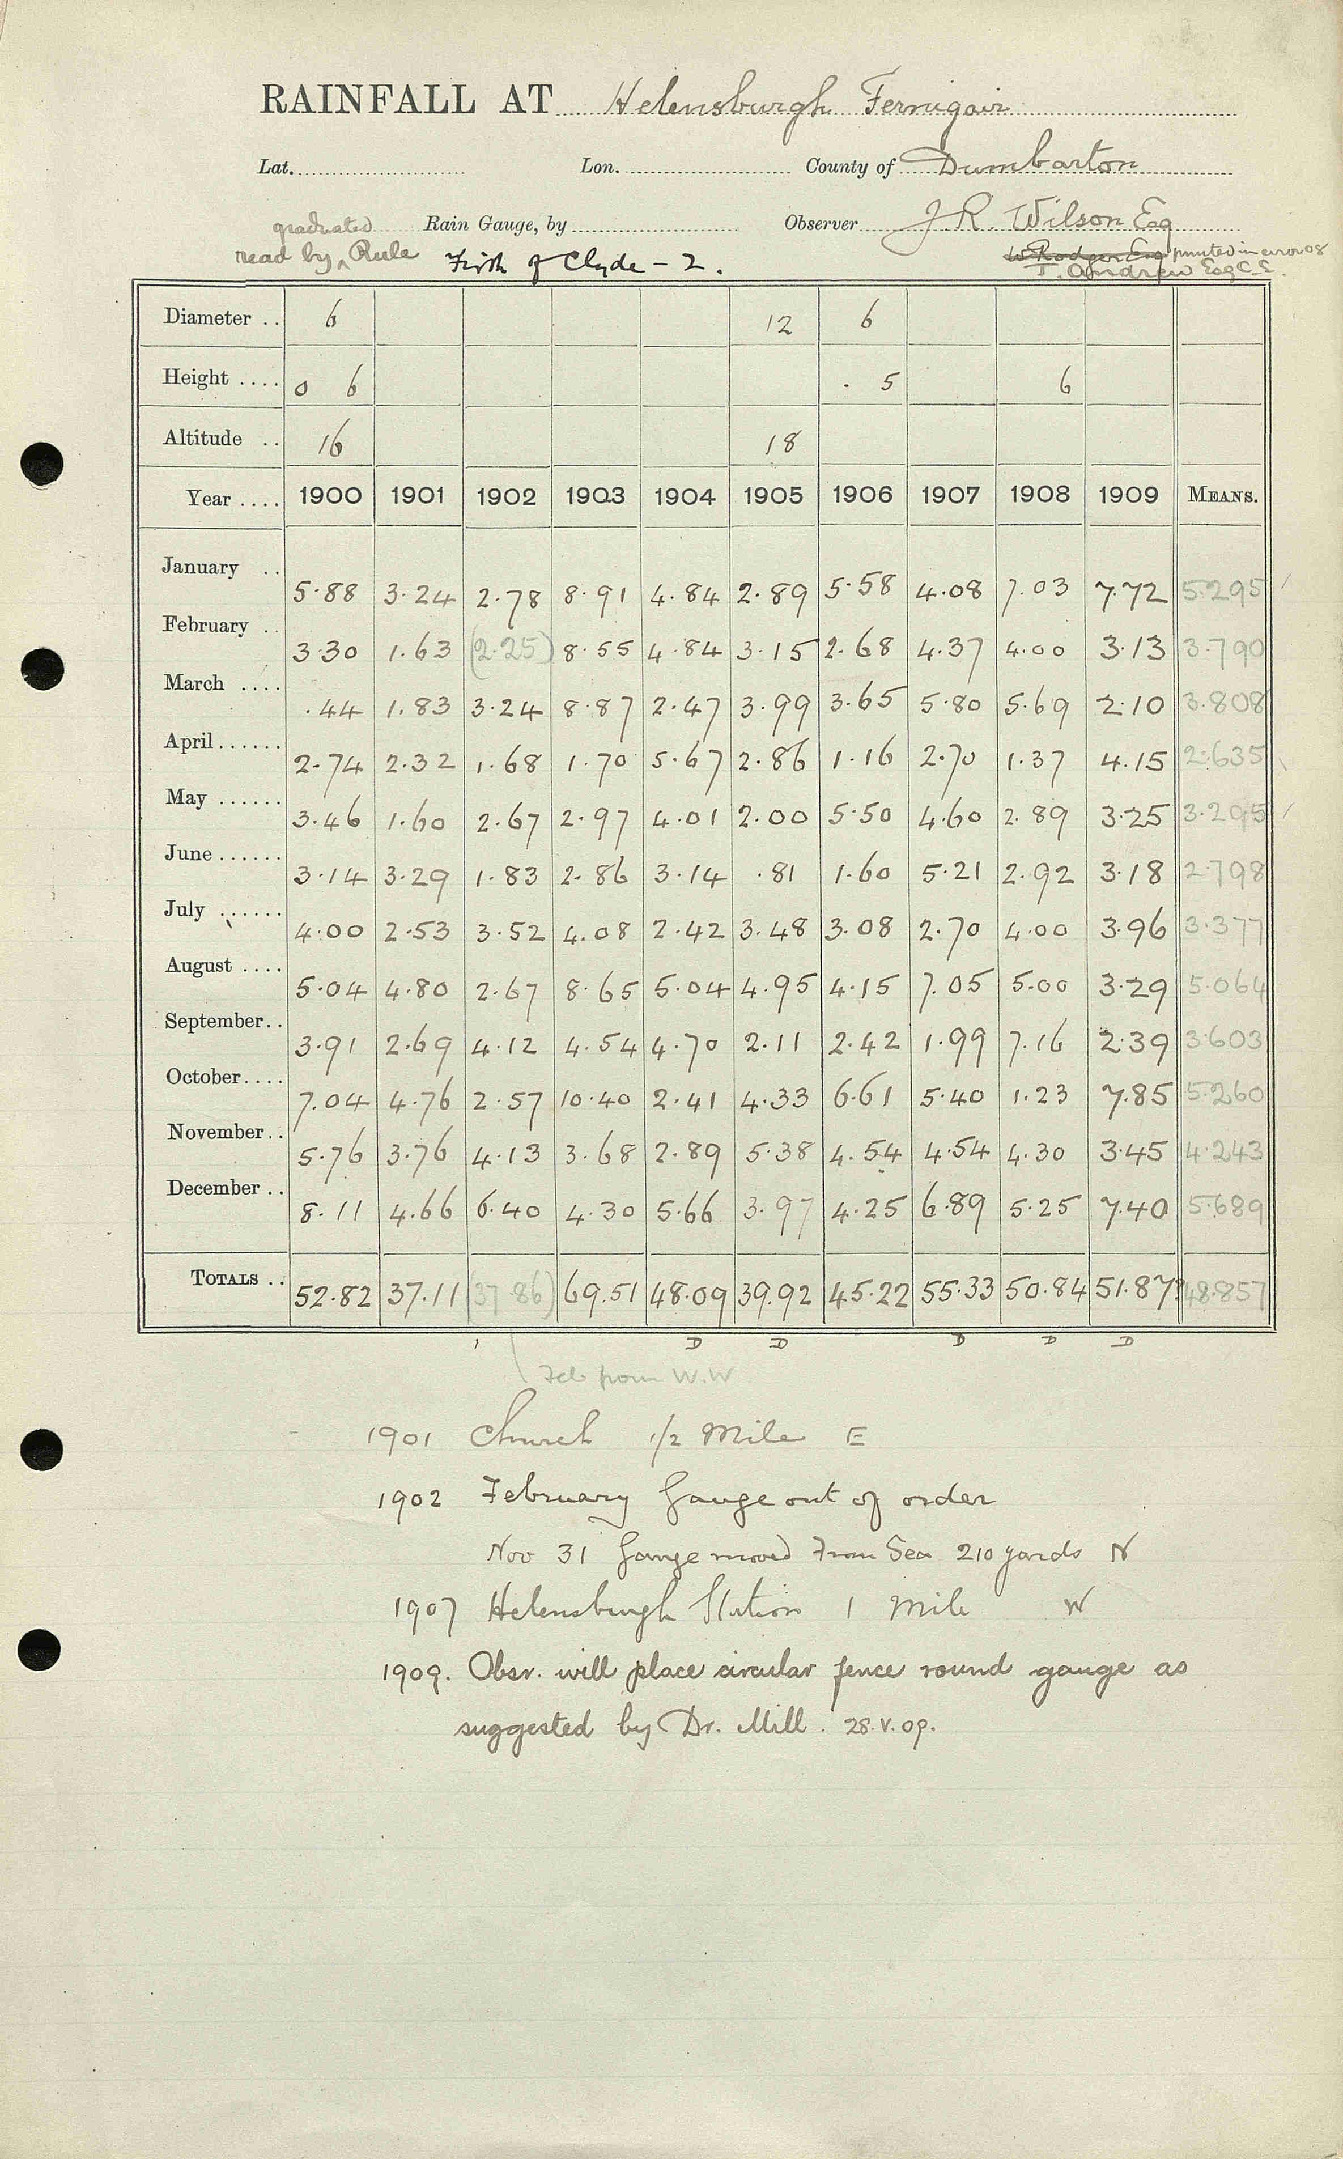 RAINFALL AT Helensburgh Fernigair
Lat. Lon. County of Dumbarton
graduated Rain Gauge, by Observer J R Wilson Esq
read by Rule Firth of Clyde - 2. W Rodger Esq printed in error 08
T. Andrew Esq C.E.
Diameter .. 6 12 6
Height .... 0 6 . 5 6
Altitude .. 16 18
Year .... 1900 1901 1902 1903 1904 1905 1906 1907 1908 1909 MEANS.
January .. 5.88 3.24 2.78 8.91 4.84 2.89 5.58 4.08 7.03 7.72 5.295
February .. 3.30 1.63 (2.25) 8.55 4.84 3.15 2.68 4.37 4.00 3.13 3.790
March .... .44 1.83 3.24 8.87 2.47 3.99 3.65 5.80 5.69 2.10 3.808
April ...... 2.74 2.32 1.68 1.70 5.67 2.86 1.16 2.70 1.37 4.15 2.635
May ...... 3.46 1.60 2.67 2.97 4.01 2.00 5.50 4.60 2.89 3.25 3.295
June ...... 3.14 3.29 1.83 2.86 3.14 .81 1.60 5.21 2.92 3.18 2.798
July ...... 4.00 2.53 3.52 4.08 2.42 3.48 3.08 2.70 4.00 3.96 3.377
August .... 5.04 4.80 2.67 8.65 5.04 4.95 4.15 7.05 5.00 3.29 5.064
September.. 3.91 2.69 4.12 4.54 4.70 2.11 2.42 1.99 7.16 2.39 3.603
October.... 7.04 4.76 2.57 10.40 2.41 4.33 6.61 5.40 1.23 7.85 5.260
November.. 5.76 3.76 4.13 3.68 2.89 5.38 4.54 4.54 4.30 3.45 4.243
December .. 8.11 4.66 6.40 4.30 5.66 3.97 4.25 6.89 5.25 7.40 5.689
TOTALS .. 52.82 37.11 (37.86) 69.51 48.09 39.92 45.22 55.33 50.84 51.87 48.857
D D D D D
Feb from W.W
1901 Church 1/2 Mile E
1902 February Gauge out of order
Nov 31 Gauge moved from Sea 210 yards N
1907 Helensburgh Station 1 Mile W
1909. Obsr. will place circular fence round gauge as
suggested by Dr. Mill. 28.V.09.